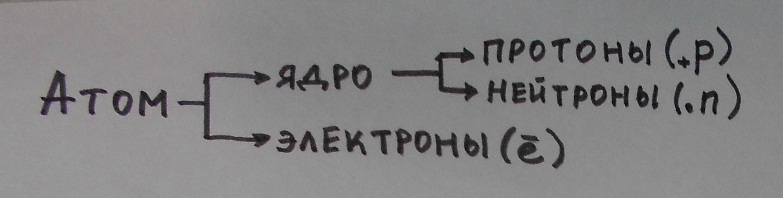 ПРОТОНЫ (₊p)
ЯДРО
НЕЙТРОНЫ (.n)
АТОМ
ЭЛЕКТРОНЫ (ē)